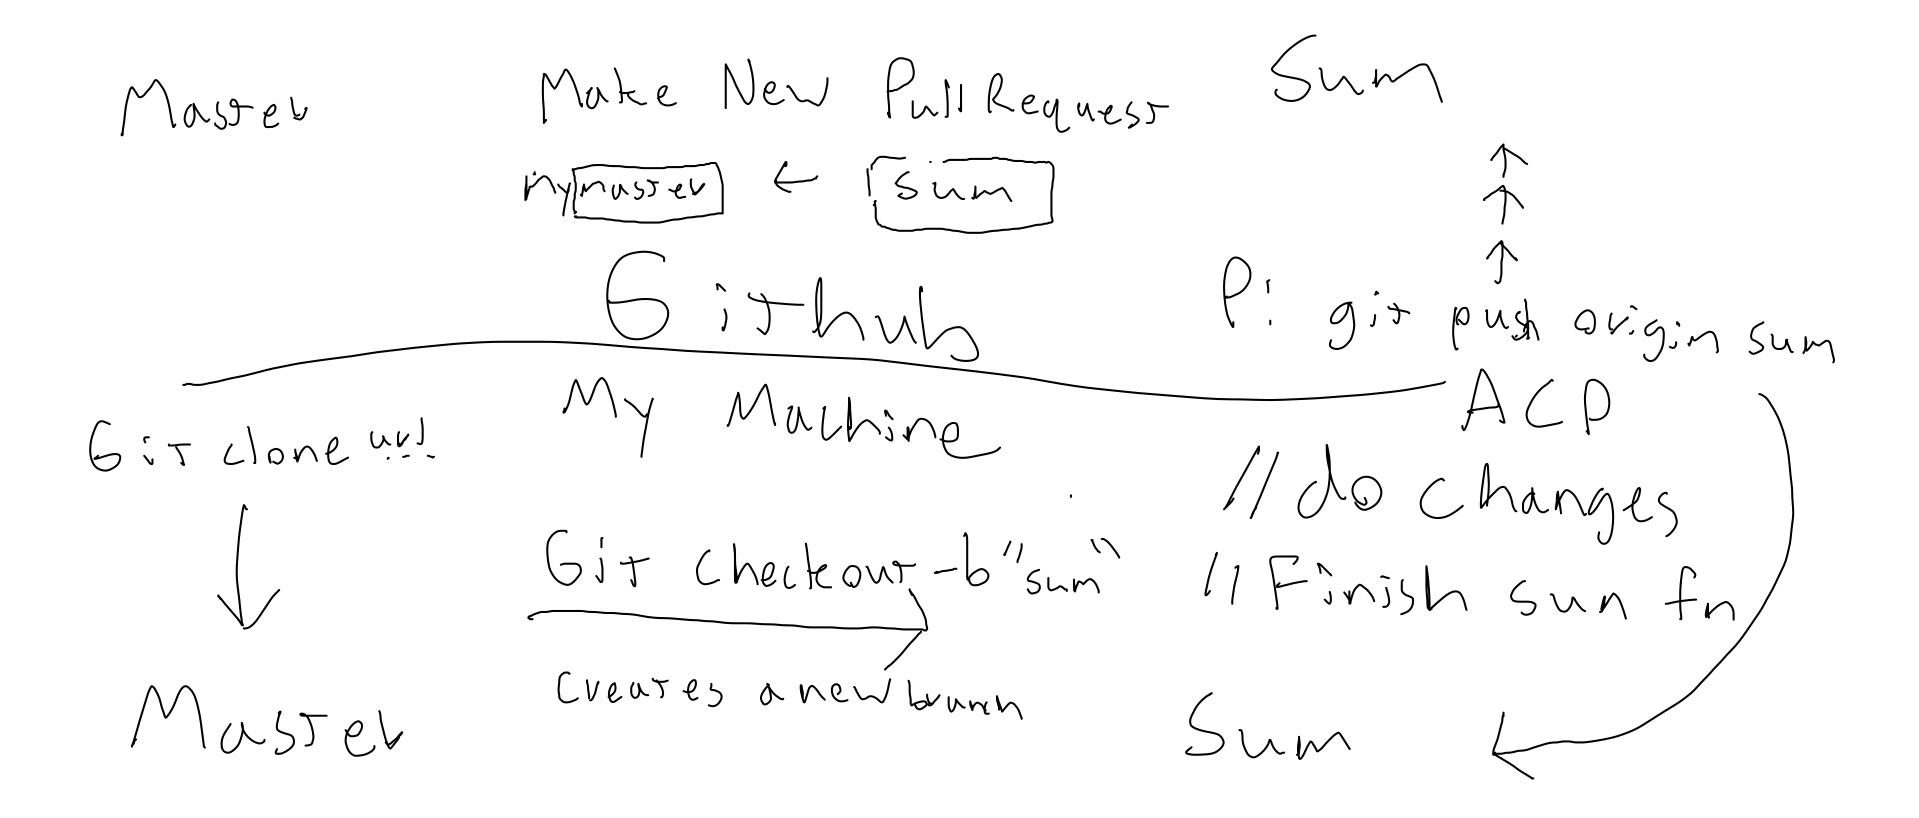 Master
Make New Pull Request
Sum
my master ← sum
Github
P: git push origin sum
My Machine
ACP
Git clone url
// do changes
Git checkout -b "sum"
// Finish sun fn
creates a new branch
Master
Sum